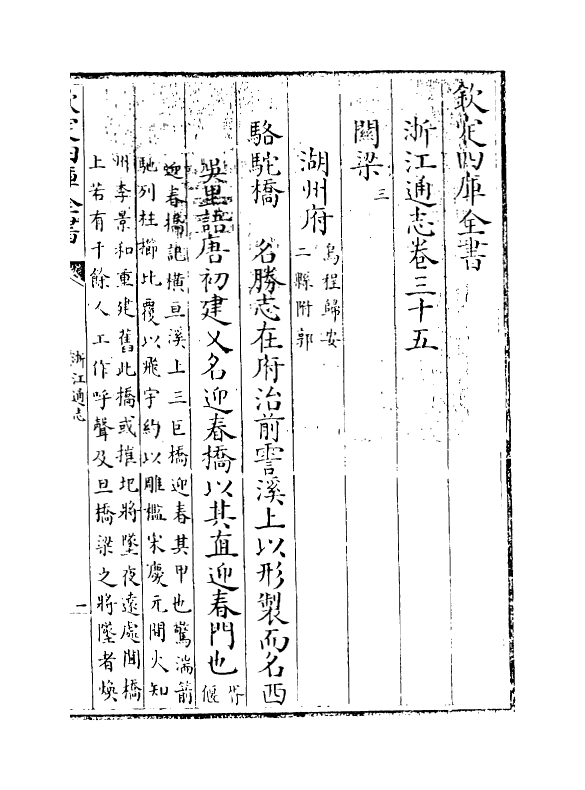 欽定四庫全書
浙江通志卷三十五
關梁三
湖州府烏程歸安二縣附郭
駱駝橋　名勝志在府治前霅溪上以形製而名西
吳里語唐初建又名迎春橋以其直迎春門也
偃
迎春橋記橫亘溪上三巨橋迎春其甲也驚湍箭
馳列柱櫛比覆以飛宇約以雕檻宋慶元間火知
州李景和重建舊此橋或摧圯將墜夜遠處聞橋
上若有千餘人工作呼聲及旦橋梁之將墜者煥
欽定四庫全書
浙江通志
一